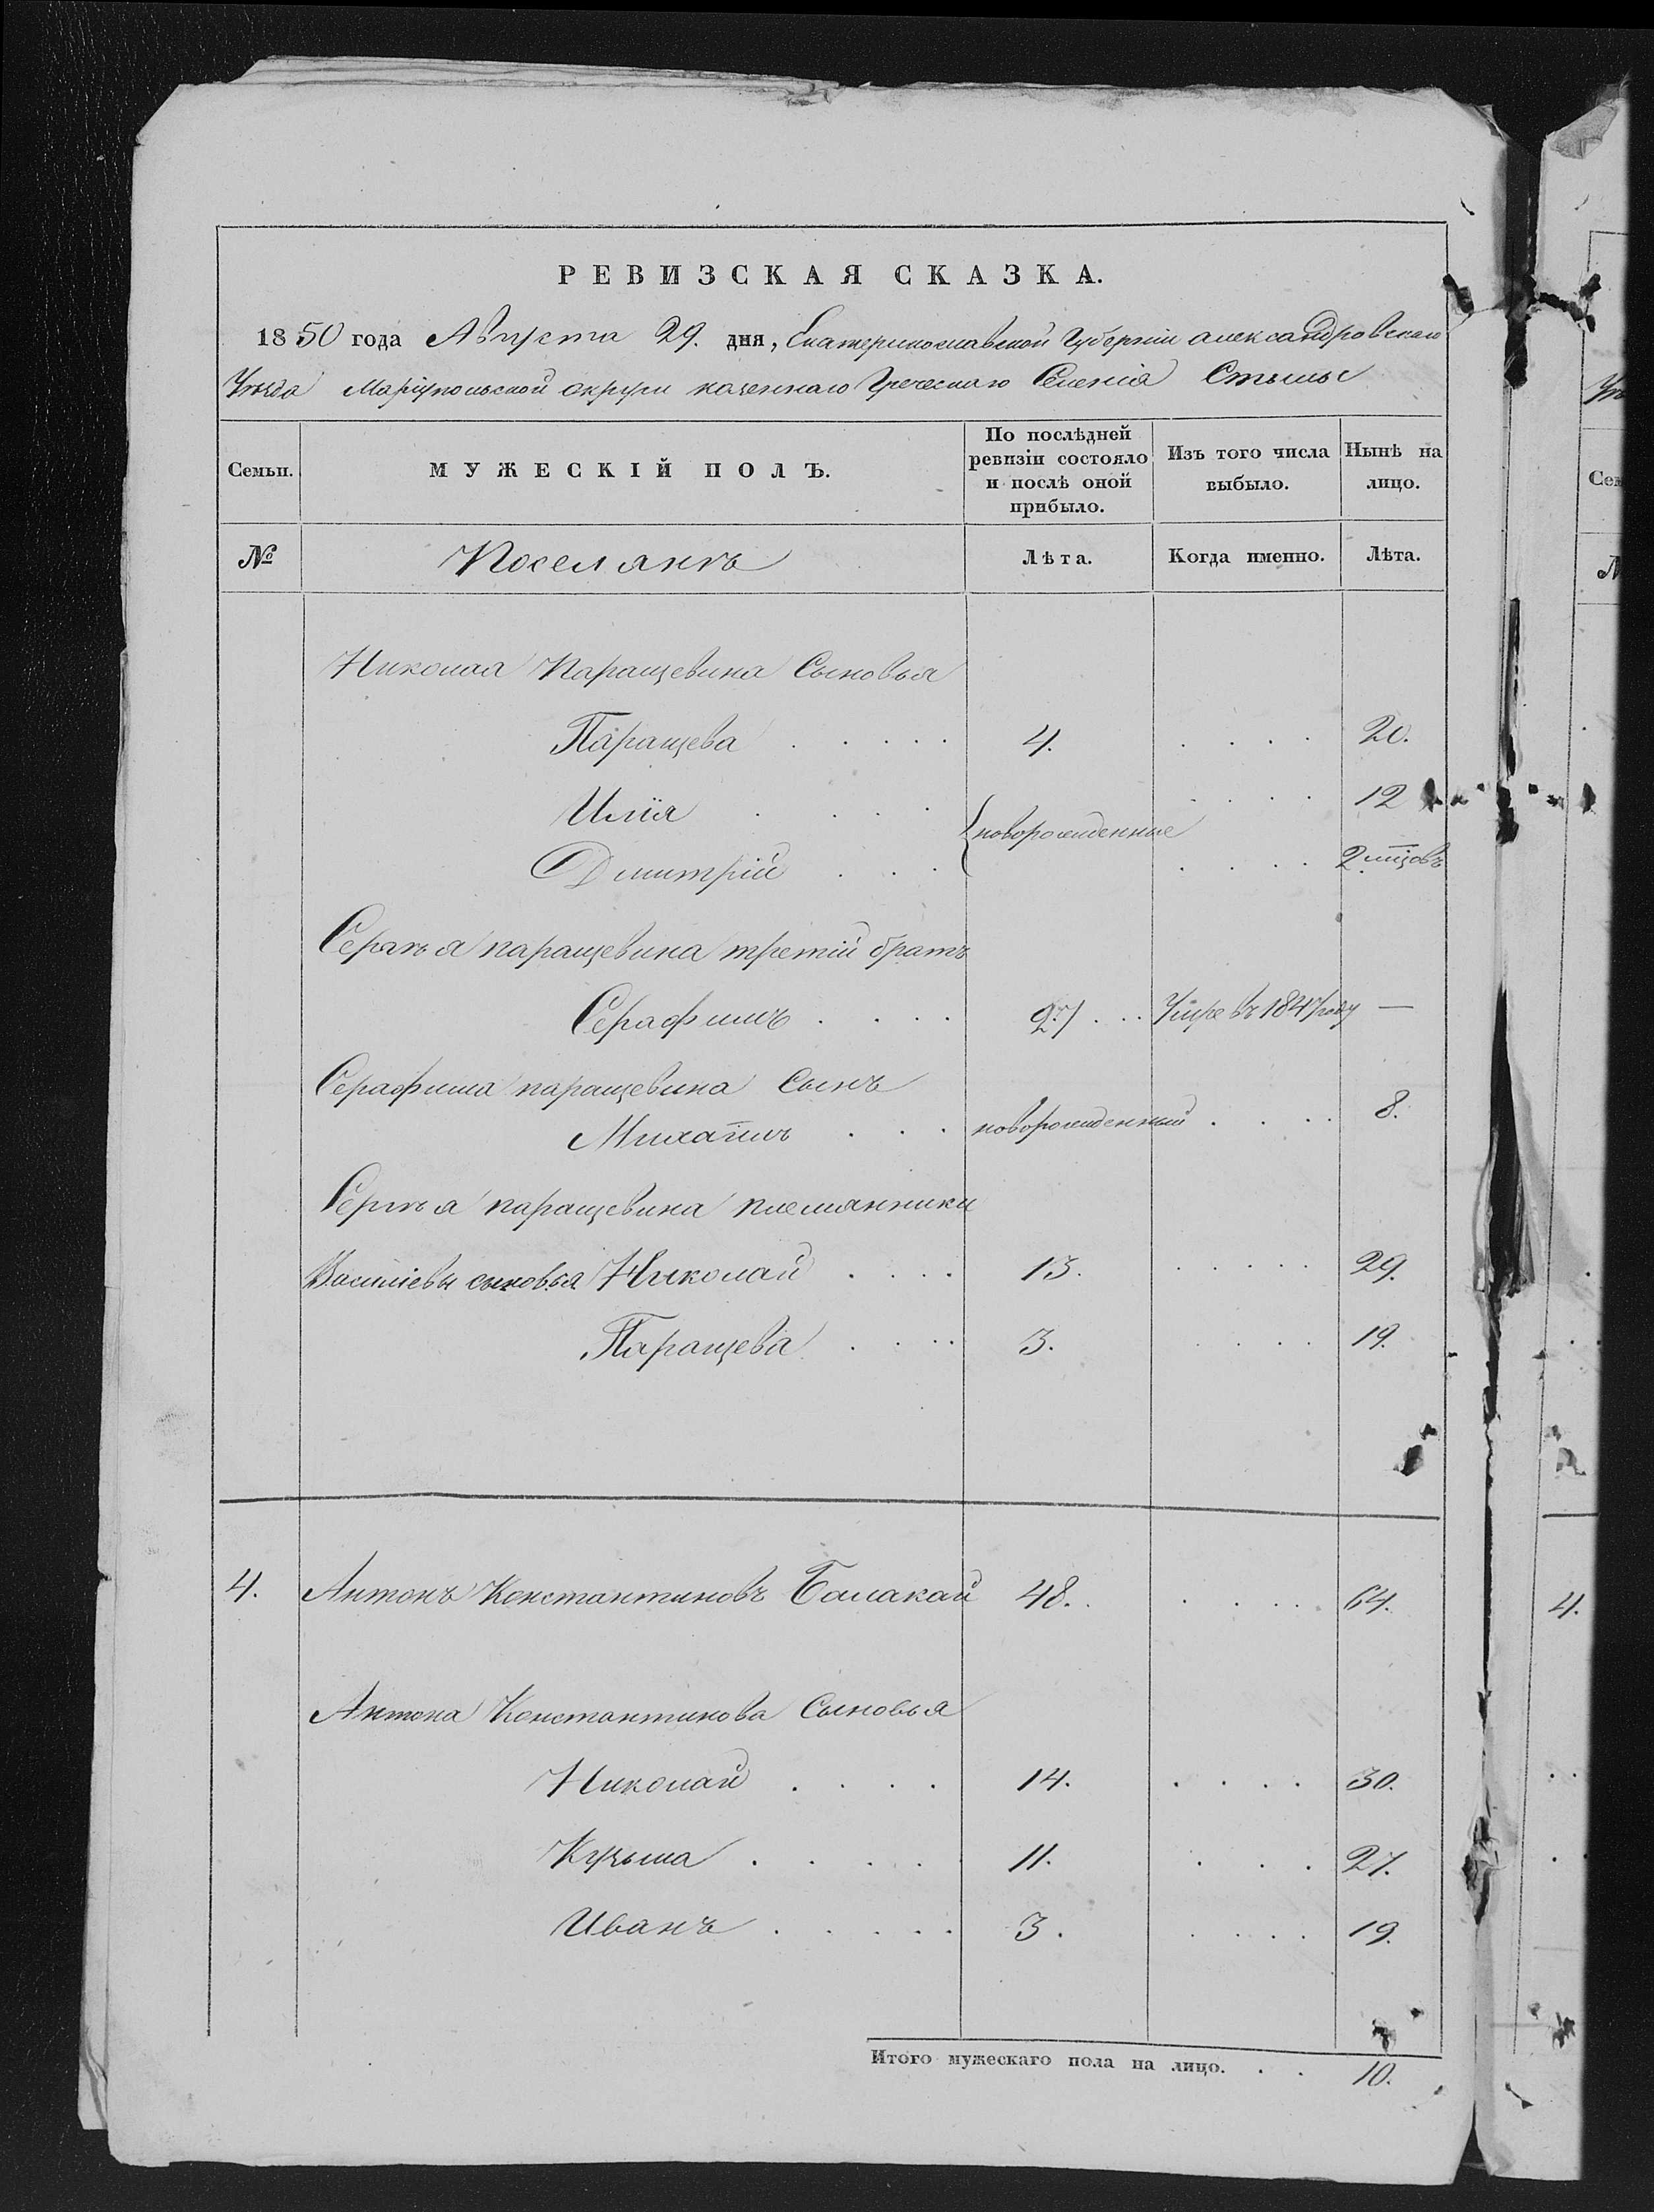 РЕВИЗСКАЯ СКАЗКА.
1850 года Августа 29. дня, Екатеринославской Губерніи александровскаго
Уѣзда Маріупольской округи казеннаго Греческаго Селенія Стылы
Семьи. МУЖЕСКІЙ ПОЛЪ. По послѣдней ревизіи состояло и послѣ оной прибыло. Изъ того числа выбыло. Нынѣ на лицо.
№ Поселянъ Лѣта. Когда именно. Лѣта.
Николая Паращевина Сыновья
Паращева 4. 20.
Илія 12
новорожденные
Дмитрій 2 мцовъ
Сергѣя паращевина третій братъ
Серафимъ 27 Умре въ 1847 году —
Серафима паращевина Сынъ
Михаилъ новорожденный 8.
Сергѣя паращевина племянники
Василіевы сыновья Николай 13. 29.
Паращева 3. 19.
4. Антонъ Константиновъ Балакай 48. 64. 4.
Антона Константинова Сыновья
Николай 14. 30.
Кузьма 11. 27.
Иванъ 3. 19.
Итого мужескаго пола на лицо. 10.